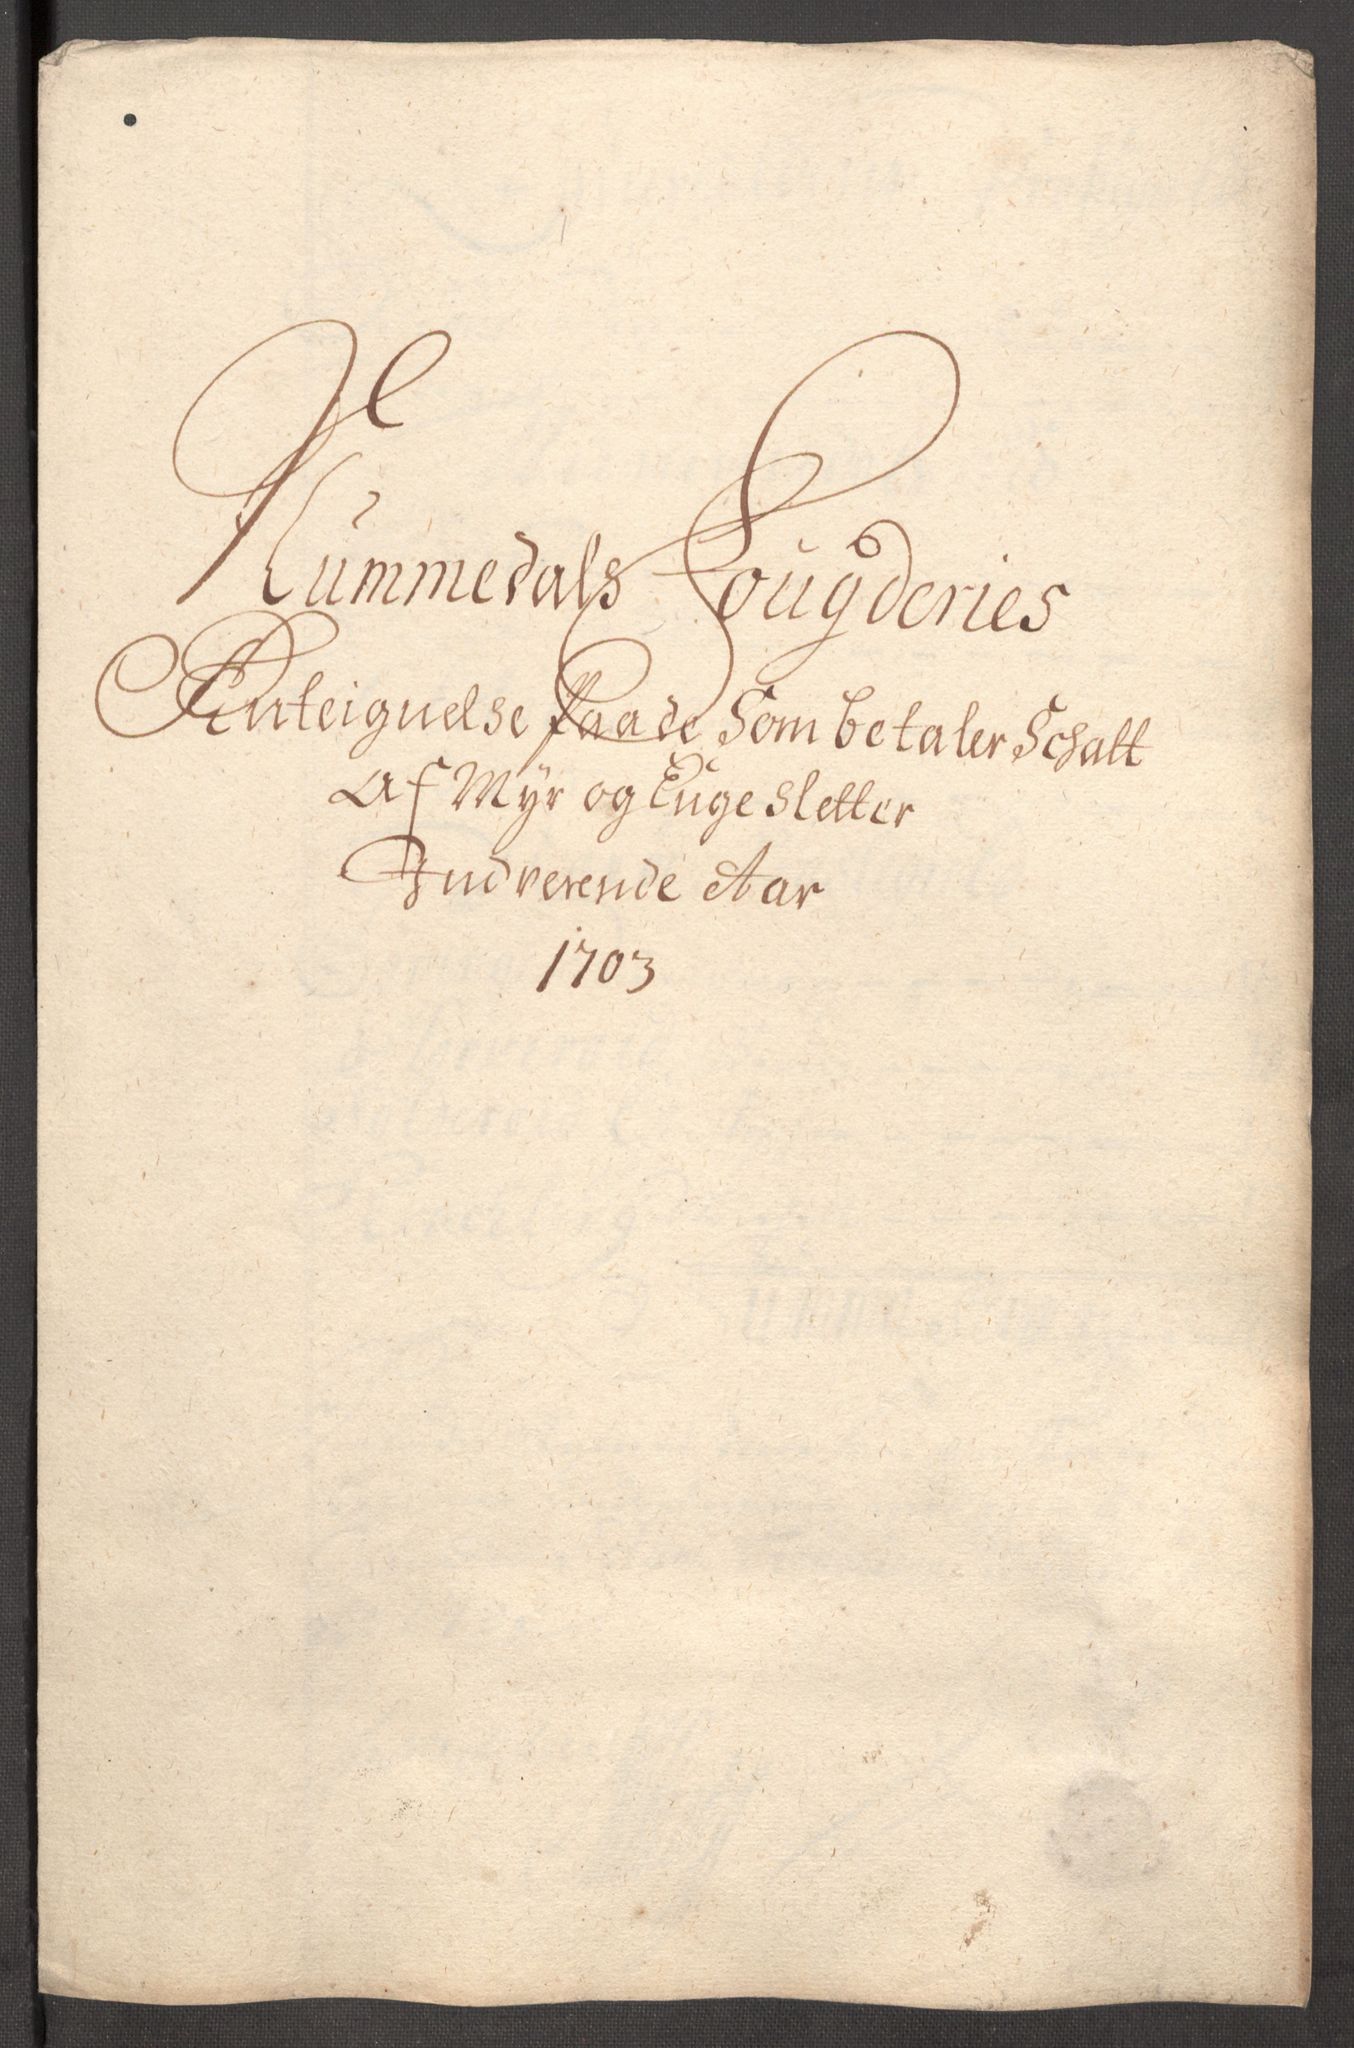 Nummedals Fougderies
Anteignelse Paa de Som betaler Schatt
Af Myr og Enge Sletter
Indverende Aar
1703